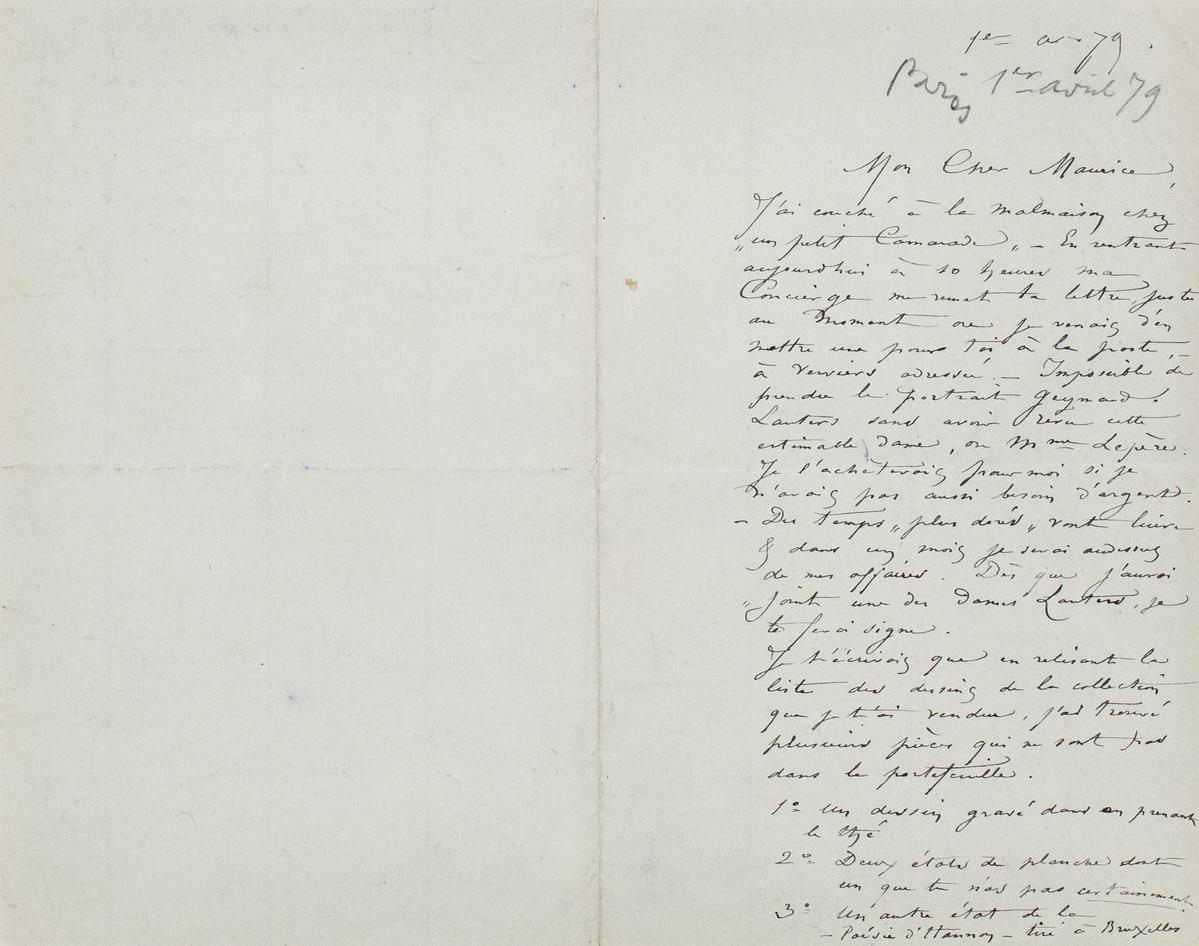 1er av 79.
Paris 1er avril 79
Mon Cher Maurice,
J'ai couché à la Malmaison chez
„un petit Camarade„ – En rentrant
aujourdhui à 10 heures ma
Concierge me remet ta lettre, juste
au moment ou je venais d'en
mettre une pour toi à la poste, –
à Verviers adressée. – Impossible de
prendre le portrait
Lauters sans avoir revu cette
estimable dame, ou Mme Lepère.
Je l'acheterais pour moi si je
n'avais pas aussi besoin d'argent.
– Des temps „plus dorés„ vont luire
& dans un mois je serai audessus
de mes affaires. Dès que j'aurai
„joint une des Dames Lauters, je
te ferai signe.
Je t'écrivais que en relisant la
liste des dessins de la collection
que je t'ai vendue, j'ai trouvé
plusieurs pièces qui ne sont pas
dans le portefeuille.
1o Un dessin gravé dans en prenant
le thé
2o Deux états de planche dont
un que tu n'as pas certainement.
3o Un autre état de la
– Poésie d'Hannon – tiré à Bruxelles